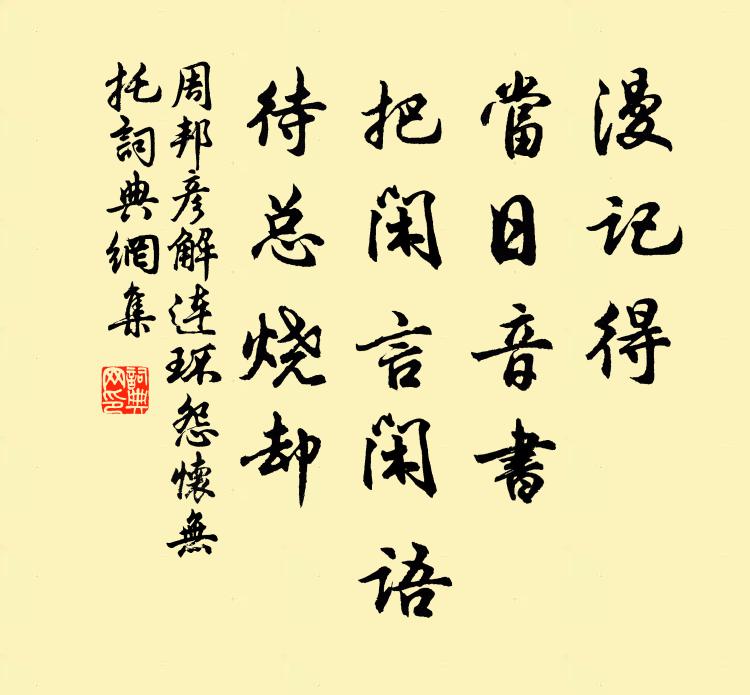 漫记得
當日音書
把闲言闲語
待总烧却
周邦彦解连环怨懷無
托詞典網集
詞典网印